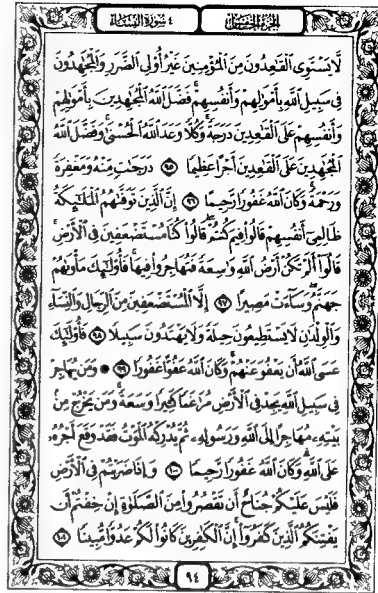 الجزء الخامس
٤ سورة النساء
لَّا يَسْتَوِى ٱلْقَٰعِدُونَ مِنَ ٱلْمُؤْمِنِينَ غَيْرُ أُو۟لِى ٱلضَّرَرِ وَٱلْمُجَٰهِدُونَ
فِى سَبِيلِ ٱللَّهِ بِأَمْوَٰلِهِمْ وَأَنفُسِهِمْ ۚ فَضَّلَ ٱللَّهُ ٱلْمُجَٰهِدِينَ بِأَمْوَٰلِهِمْ
وَأَنفُسِهِمْ عَلَى ٱلْقَٰعِدِينَ دَرَجَةً ۚ وَكُلًّا وَعَدَ ٱللَّهُ ٱلْحُسْنَىٰ ۚ وَفَضَّلَ ٱللَّهُ
ٱلْمُجَٰهِدِينَ عَلَى ٱلْقَٰعِدِينَ أَجْرًا عَظِيمًا ٩٥ دَرَجَٰتٍ مِّنْهُ وَمَغْفِرَةً
وَرَحْمَةً ۚ وَكَانَ ٱللَّهُ غَفُورًا رَّحِيمًا ٩٦ إِنَّ ٱلَّذِينَ تَوَفَّىٰهُمُ ٱلْمَلَٰٓئِكَةُ
ظَالِمِىٓ أَنفُسِهِمْ قَالُوا۟ فِيمَ كُنتُمْ ۖ قَالُوا۟ كُنَّا مُسْتَضْعَفِينَ فِى ٱلْأَرْضِ ۚ
قَالُوٓا۟ أَلَمْ تَكُنْ أَرْضُ ٱللَّهِ وَٰسِعَةً فَتُهَاجِرُوا۟ فِيهَا ۚ فَأُو۟لَٰٓئِكَ مَأْوَىٰهُمْ
جَهَنَّمُ ۖ وَسَآءَتْ مَصِيرًا ٩٧ إِلَّا ٱلْمُسْتَضْعَفِينَ مِنَ ٱلرِّجَالِ وَٱلنِّسَآءِ
وَٱلْوِلْدَٰنِ لَا يَسْتَطِيعُونَ حِيلَةً وَلَا يَهْتَدُونَ سَبِيلًا ٩٨ فَأُو۟لَٰٓئِكَ
عَسَى ٱللَّهُ أَن يَعْفُوَ عَنْهُمْ ۚ وَكَانَ ٱللَّهُ عَفُوًّا غَفُورًا ٩٩ ● وَمَن يُهَاجِرْ
فِى سَبِيلِ ٱللَّهِ يَجِدْ فِى ٱلْأَرْضِ مُرَٰغَمًا كَثِيرًا وَسَعَةً ۚ وَمَن يَخْرُجْ مِنۢ
بَيْتِهِۦ مُهَاجِرًا إِلَى ٱللَّهِ وَرَسُولِهِۦ ثُمَّ يُدْرِكْهُ ٱلْمَوْتُ فَقَدْ وَقَعَ أَجْرُهُۥ
عَلَى ٱللَّهِ ۗ وَكَانَ ٱللَّهُ غَفُورًا رَّحِيمًا ١٠٠ وَإِذَا ضَرَبْتُمْ فِى ٱلْأَرْضِ
فَلَيْسَ عَلَيْكُمْ جُنَاحٌ أَن تَقْصُرُوا۟ مِنَ ٱلصَّلَوٰةِ إِنْ خِفْتُمْ أَن
يَفْتِنَكُمُ ٱلَّذِينَ كَفَرُوٓا۟ ۚ إِنَّ ٱلْكَٰفِرِينَ كَانُوا۟ لَكُمْ عَدُوًّا مُّبِينًا ١٠١
٩٤